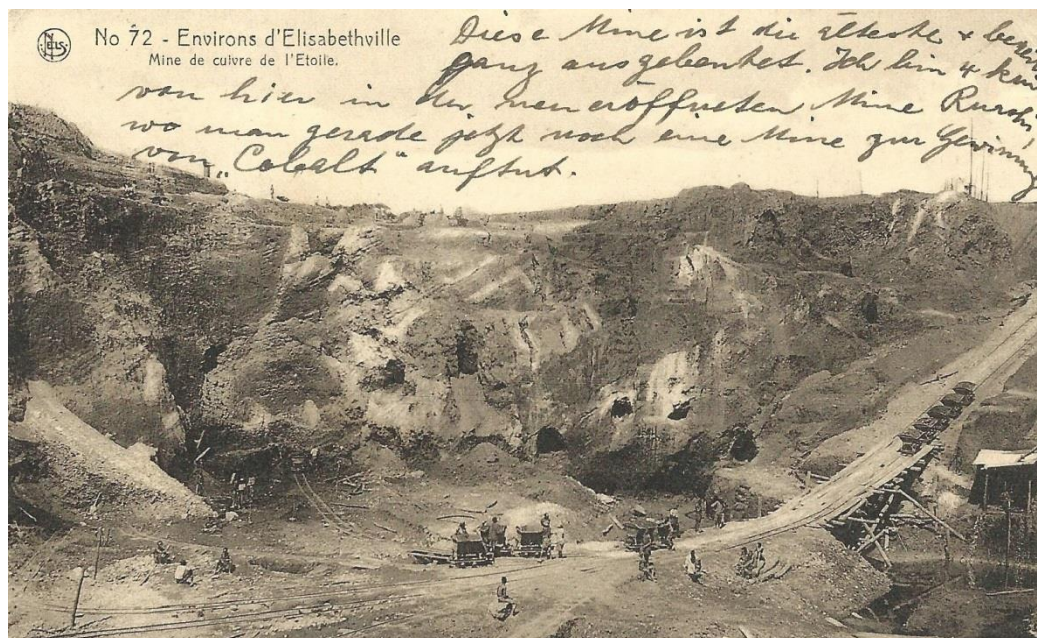 NELS
No 72 - Environs d'Elisabethville
Mine de cuivre de l'Etoile.
Diese Mine ist die älteste + bereits
ganz ausgebeutet. Ich bin 4 km
von hier in der neu eröffneten Mine
wo man gerade jetzt noch eine Mine zur Gewinnung
von „Cobalt" auftut.